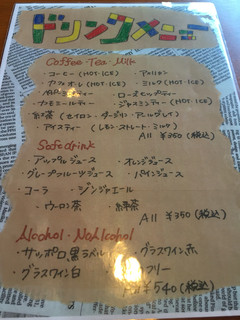 ドリンクメニュー
Coffee Tea Milk
・コーヒー(HOT・ICE) ・アメリカン
・カフェオレ(HOT・ICE) ・ミルク(HOT・ICE)
ティー ・ローズヒップティー
・カモミールティー ・ジャスミンティー(HOT・ICE)
・紅茶(セイロン・ダージリン・アールグレイ)
・アイスティー(レモン・ストレート・ミルク)
All ¥350(税込)
Safe drink
・アップルジュース ・オレンジジュース
・グレープフルーツジュース ・パインジュース
・コーラ ・ジンジャエール
・ウーロン茶 ・紅茶
All ¥350(税込)
Alcohol・NoAlcohol
・サッポロ黒ラベル ・グラスワイン赤
・グラスワイン白 フリー
¥540(税込)